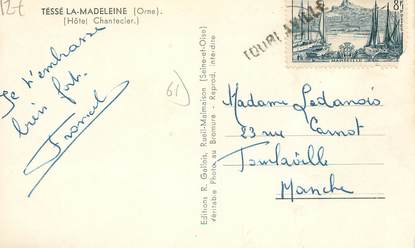 127
TESSÉ LA-MADELEINE (Orne).
(Hôtel Chantecler.)
Je t'embrasse
bien fort.
61
Editions R. Gellois, Rueil-Malmaison (Seine-et-Oise)
Véritable Photo au Bromure - Reprod. interdite.
TOURLAVILLE
8F
MARSEILLE
Madame Ledanois
23 rue Carnot
Tourlaville
Manche